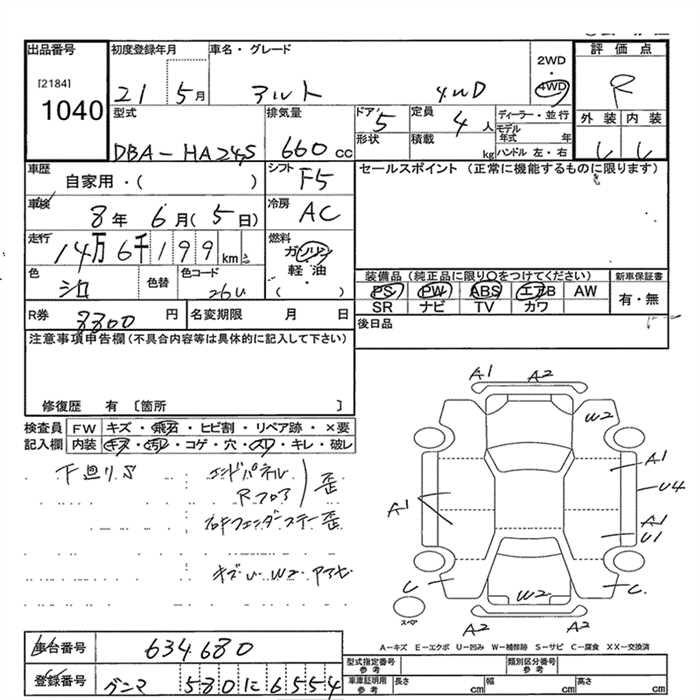 出品番号
[2184]
1040
初度登録年月
21 5月
車名・グレード
アルト 4WD
2WD
・
4WD
評価点
R
外装 内装
型式
DBA-HA24S
排気量
660 cc
ドア 5
形状
定員 4人
積載 kg
ディーラー・並行
モデル年式 年
ハンドル 左・右
車歴
自家用・( )
シフト F5
車検
8年 6月(5日)
冷房 AC
走行
14万6千199km
燃料
ガソリン
軽・油
( )
色 シロ
色替
色コード 26U
R券 8800円
名変期限 月 日
セールスポイント(正常に機能するものに限ります)
装備品(純正品に限り○をつけてください)
PS PW ABS エアB AW
SR ナビ TV カワ
新車保証書
有・無
後日品
注意事項申告欄(不具合内容等は具体的に記入して下さい)
修復歴 有 〔箇所 〕
検査員記入欄
FW キズ・飛石・ヒビ割・リペア跡・×要
内装 キズ・汚れ・コゲ・穴・スレ・キレ・破レ
下廻りS
エンドパネル
Rフロア
歪
歪
キズU W2 アリ
A1 A2
W2
A1
U4
A1
A1
U1
C
C
W2
A2 A2
スペア
A-キズ E-エクボ U-凹み W-補修跡 S-サビ C-腐食 XX-交換済
車台番号 634680
登録番号 グンマ 580に6554
型式指定番号 参考
類別区分番号 参考
車庫証明用 参考
長さ cm
幅 cm
高さ cm